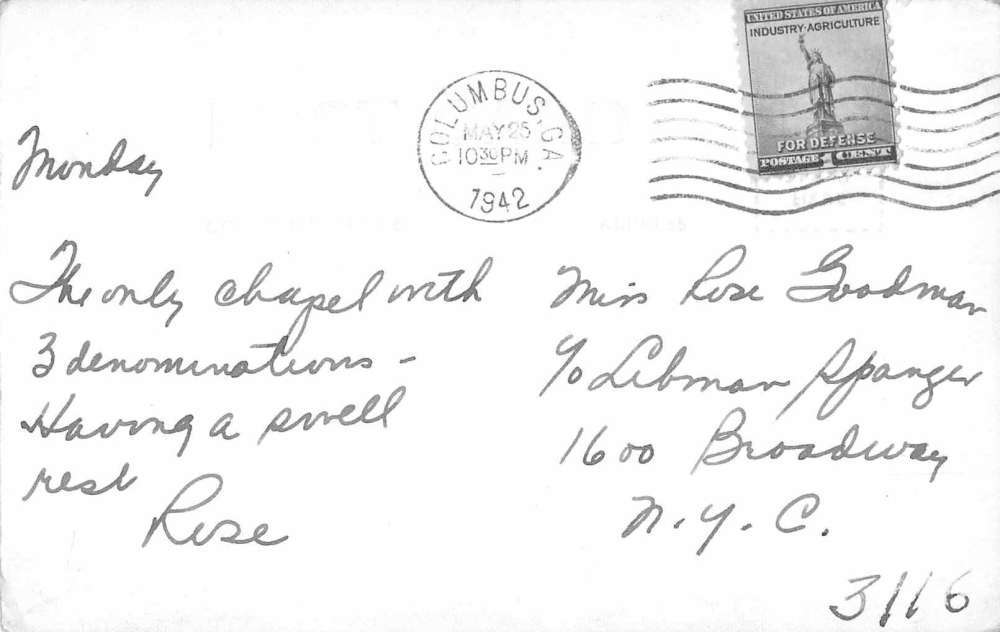 UNITED STATES OF AMERICA
INDUSTRY·AGRICULTURE
FOR DEFENSE
POSTAGE 1 CENT
COLUMBUS, GA.
MAY 25
10 30 PM
1942
Monday
The only chapel with
3 denominations -
Having a swell
rest
Rose
Miss Rose Goodman
c/o Libman Spanger
1600 Broadway
N. Y. C.
3116